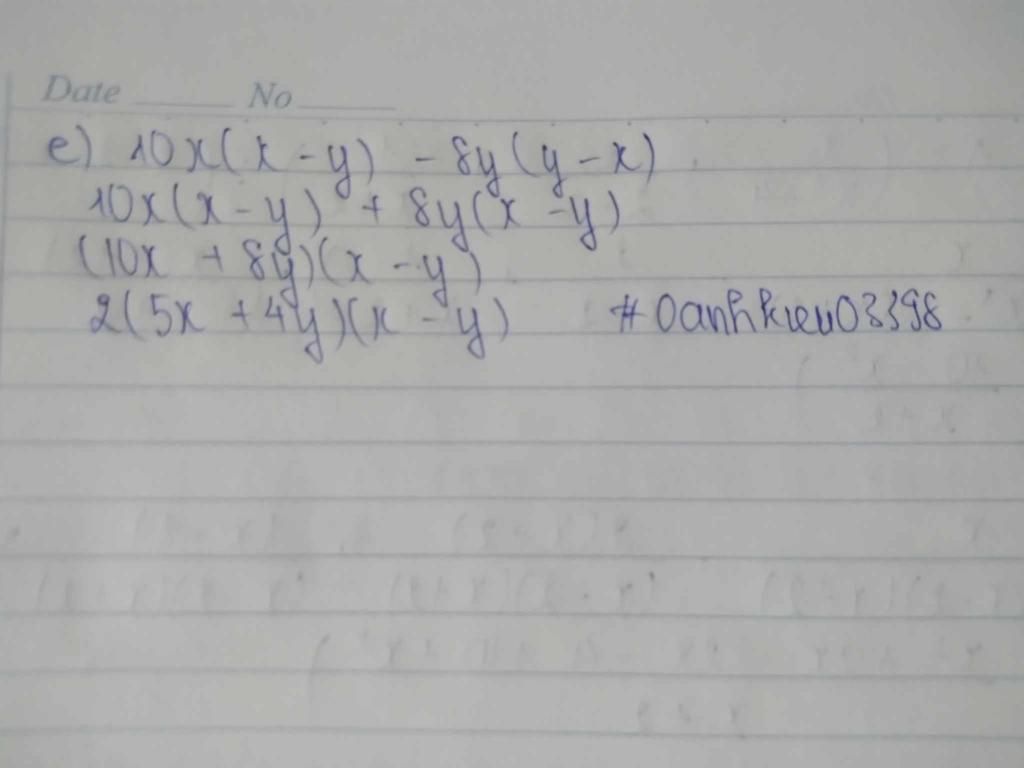 Date No
e) 10x(x - y) - 8y(y - x)
10x(x - y) + 8y(x - y)
(10x + 8y)(x - y)
2(5x + 4y)(x - y) #0anhkieu03398